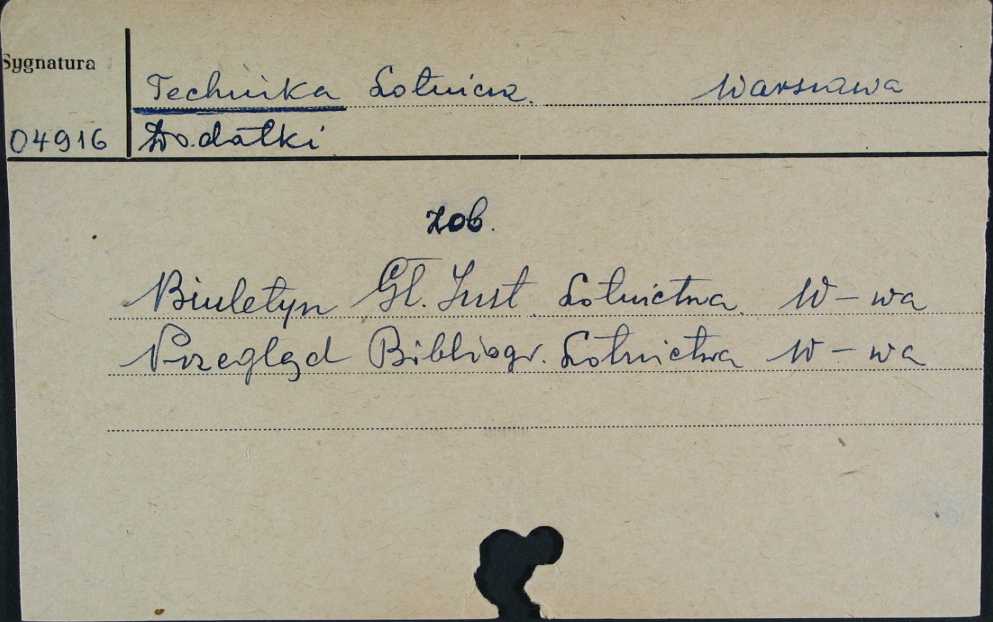 Sygnatura
Technika Lotnicza. Warszawa
04916 Dodatki
zob.
Biuletyn Gł. Inst. Lotnictwa. W-wa
Przegląd Bibliogr. Lotnictwa W-wa